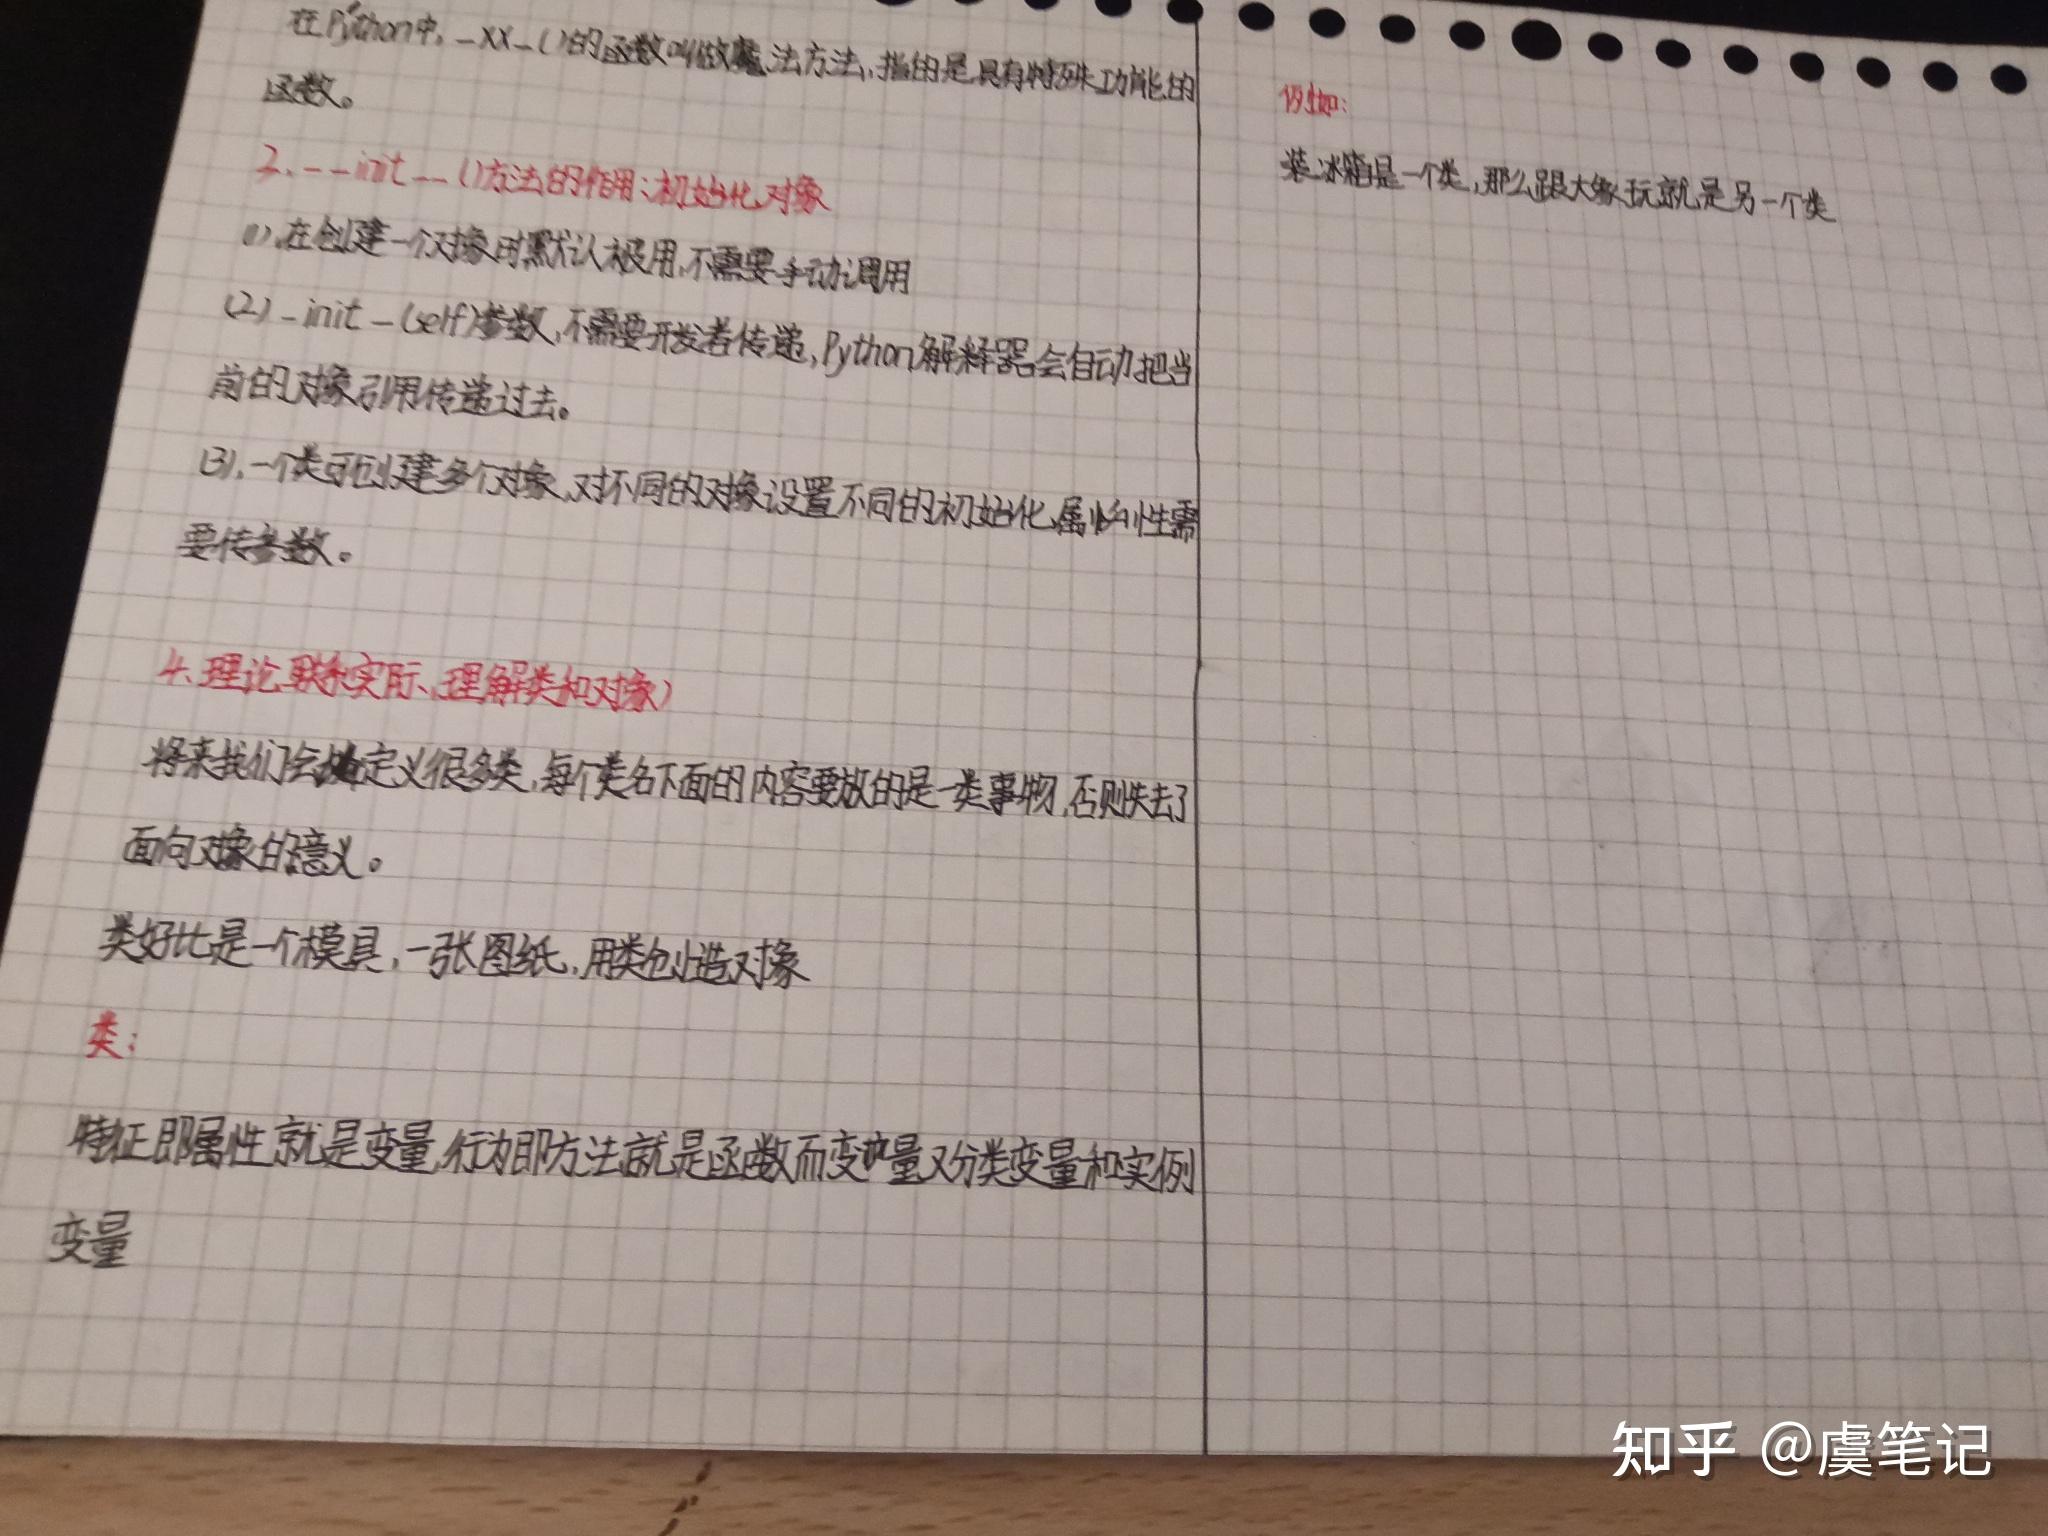 在Python中,_xx_()的函数叫做魔法方法,指的是具有特殊功能的
函数。
2、__init__()方法的作用:初始化对象
(1)、在创建一个对象时默认被用,不需要手动调用
(2)_init_(self)参数,不需要开发者传递,Python解释器会自动把当
前的对象引用传递过去。
(3)、一个类可创建多个对象,对不同的对象设置不同的初始化属性需
要传参数。
4、理论联系实际、理解类和对象)
将来我们会定义很多类,每个类名下面的内容要放的是一类事物,否则失去了
面向对象的意义。
类好比是一个模具,一张图纸,用类创造对象
类:
特征即属性就是变量,行为即方法就是函数而变量又分类变量和实例
变量
例如:
装冰箱是一个类,那么跟大象玩就是另一个类
知乎 @虞笔记